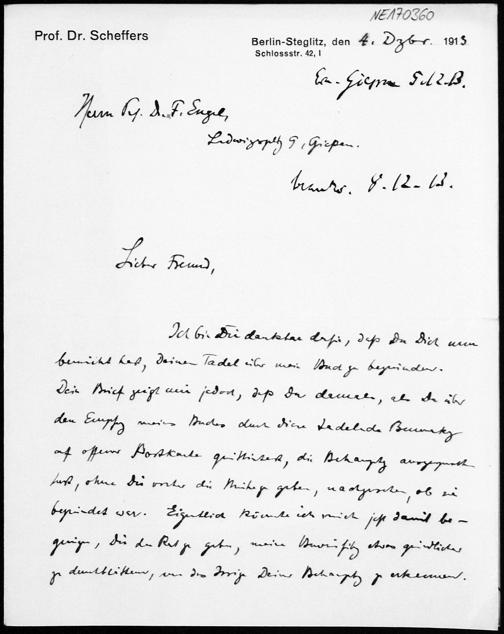 NE170360
Prof. Dr. Scheffers
Berlin-Steglitz, den 4. Dzbr. 1913
Schlossstr. 42, I
Gießen 5.12.13.
Herrn Prof. Dr. F. Engel,
Gießen.
8.12.13.
Lieber Freund,
Ich bin Dir dankbar dafür, daß Du Dich nun
bemüht hast, Deinen Tadel über mein Buch zu begründen.
Dein Brief zeigt mir jedoch, daß Du damals, als Du über
den Empfang meines Buches durch diese tadelnde Bemerkung
auf offener Postkarte quittiertest, die Behauptung ausgesprochen
hast, ohne Dir vorher die Mühe zu geben, nachzusehen, ob sie
begründet war. Eigentlich könnte ich mich jetzt damit be-
gnügen, Dir den Rat zu geben, meine etwas gründlicher
zu durchblättern, um das Irrige Deiner Behauptung zu erkennen.